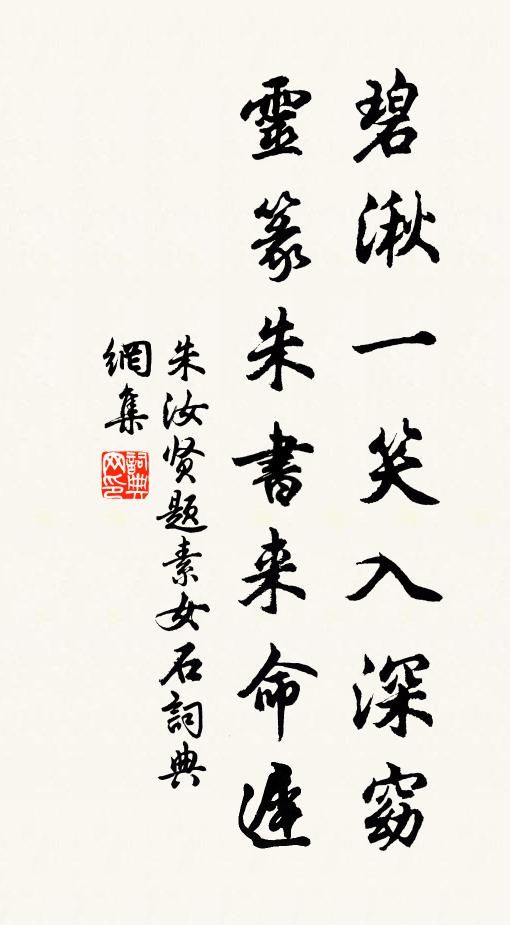 碧湫一笑入深窈
靈篆朱書来命遲
朱汝贤題素女石詞典
網集
詞典网印